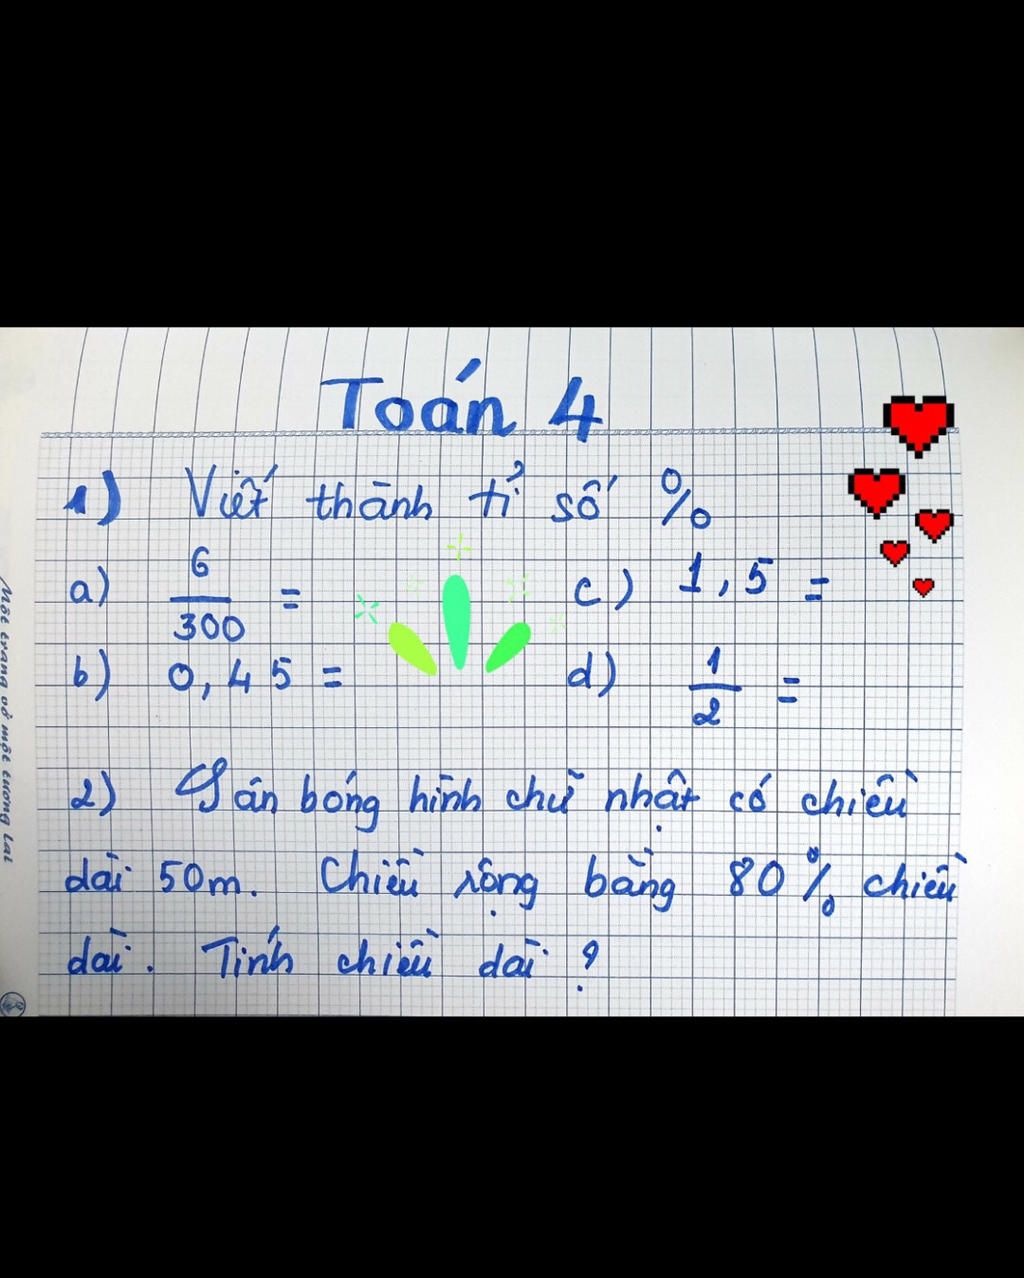 Toán 4
1) Viết thành tỉ số %
a) 6/300 = c) 1,5 =
b) 0,45 = d) 1/2 =
2) Sân bóng hình chữ nhật có chiều
dài 50m. Chiều rộng bằng 80% chiều
dài. Tính chiều dài ?
Mỗi trang vở một tương lai